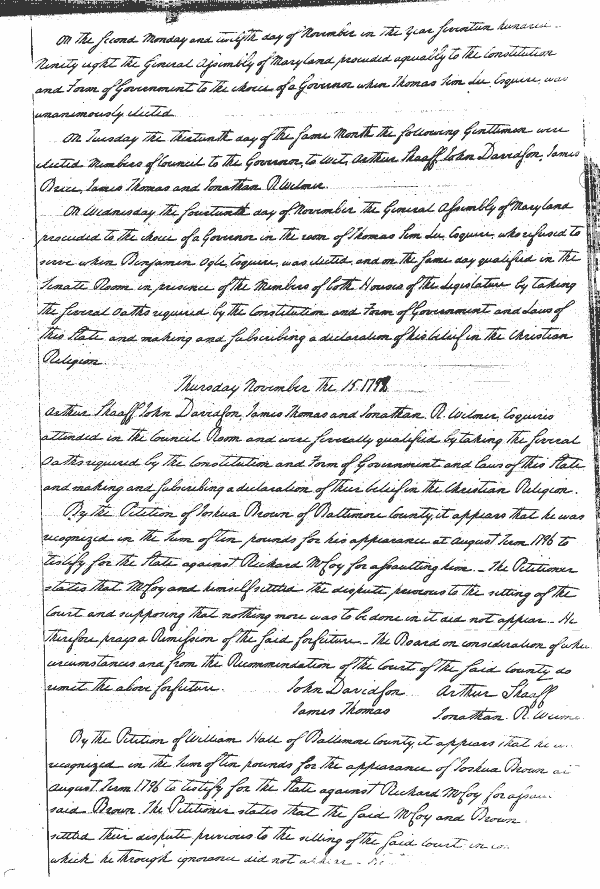 On the Second Monday and twelfth day of November in the Year Seventeen hundred
Ninety eight the General Assembly of Maryland proceeded agreeably to the Constitution
and Form of Government to the choice of a Governor when Thomas Sim Lee, Esquire, was
unanimously elected.
On Tuesday the thirteenth day of the same Month the following Gentlemen were
elected Members of Council to the Governor, to Wit, Arthur Shaaff, John Davidson, James
Brice, James Thomas and Jonathan R. Wilmer.
On Wednesday the fourteenth day of November the General Assembly of Maryland
proceeded to the choice of a Governor in the room of Thomas Sim Lee, Esquire, who refused to
serve when Benjamin Ogle Esquire, was elected, and on the same day qualified in the
Senate Room in presence of the Members of both Houses of the Legislature by taking
the several Oaths required by the Constitution and Form of Government and Laws of
this State and making and subscribing a declaration of his belief in the Christian
Religion.
Thursday November the 15. 1798
Arthur Shaaff, John Davidson, James Thomas and Jonathan R. Wilmer, Esquires
attended in the Council Room and were severally qualified by taking the several
Oaths required by the Constitution and Form of Government and Laws of this State
and making and subscribing a declaration of their belief in the Christian Religion.
By the Petition of Joshua Brown of Baltimore County, it appears that he was
recognized in the Sum of ten pounds for his appearance at August Term 1796 to
testify for the State against Richard McCoy for assaulting him. The Petitioner
states that McCoy and himself settled the dispute previous to the sitting of the
Court and supposing that nothing more was to be done in it did not appear. He
therefore prays a Remission of the said forfeiture. The Board on consideration of
circumstances and from the Recommendation of the Court of the said County do
remit the above forfeiture. John Davidson Arthur Shaaff
James Thomas Jonathan R. Wilmer
By the Petition of William Hall of Baltimore County, it appears that he
recognized in the Sum of ten pounds for the appearance of Joshua Brown at
August Term 1796 to testify for the State against Richard McCoy for
said Brown. The Petitioner states that the said McCoy and Brown
settled their dispute previous to the sitting of the said Court in
which he through ignorance did not